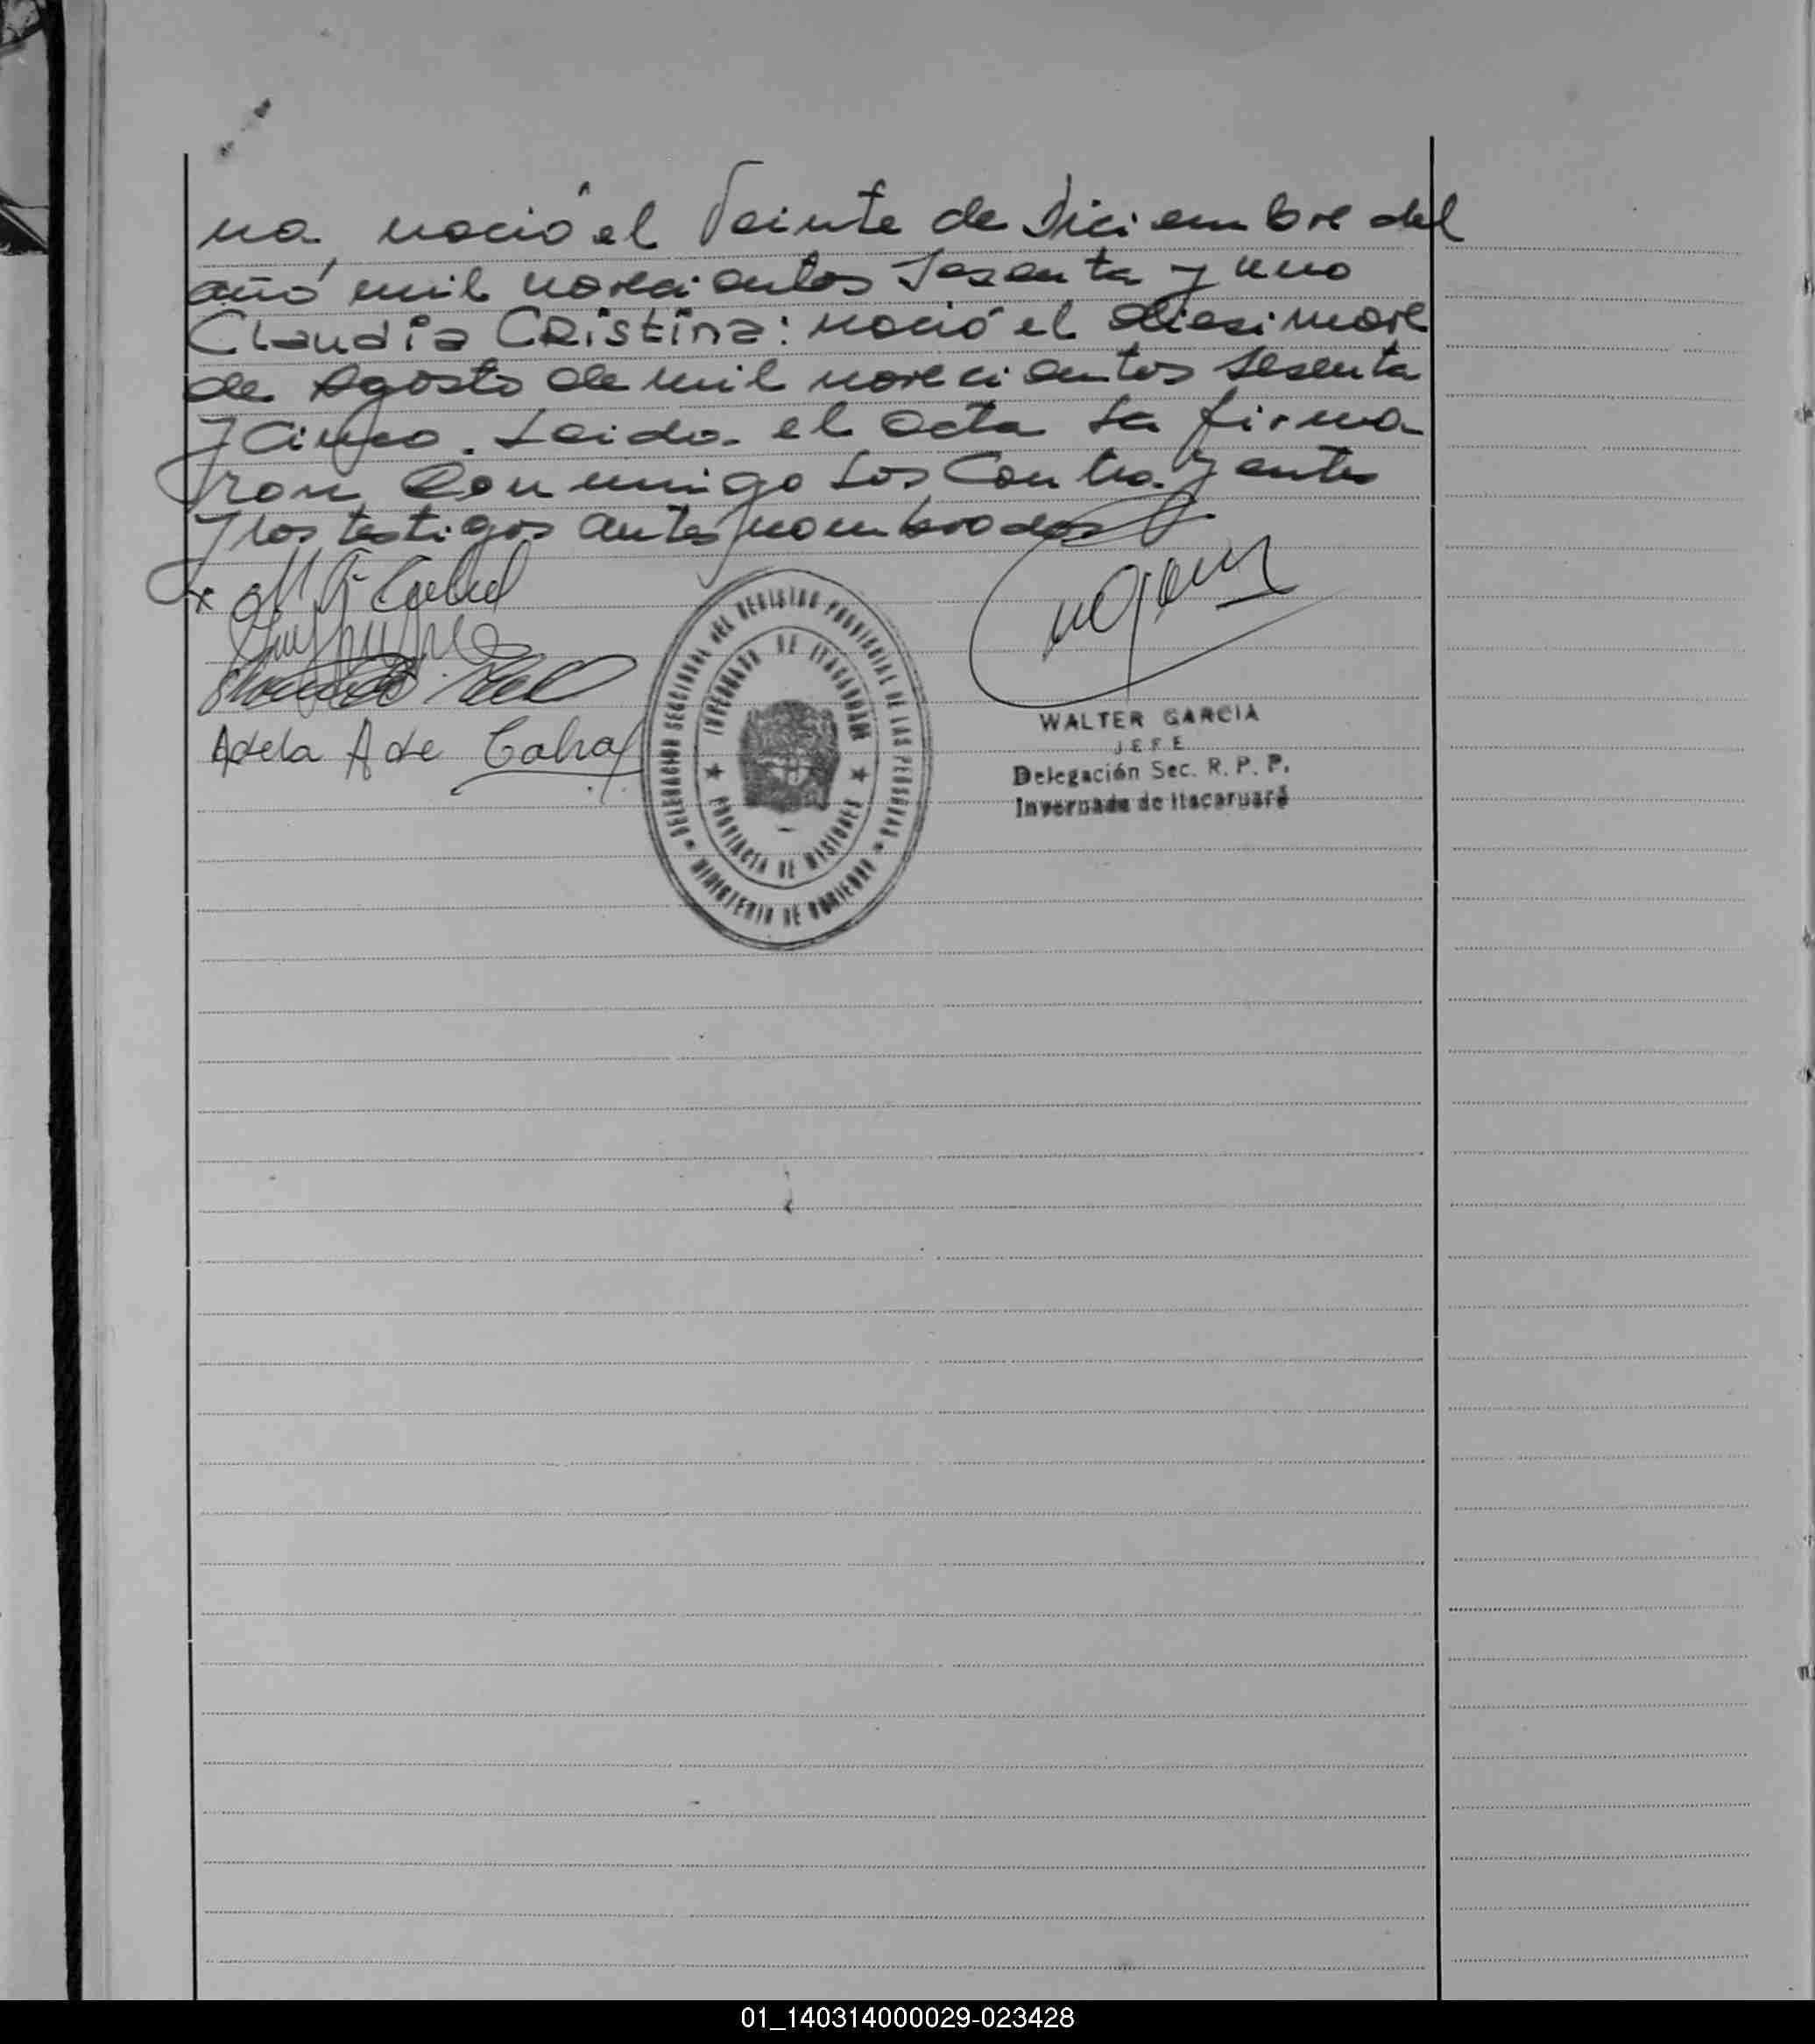 na, nació el Veinte de Diciembre del
año mil novecientos Sesenta y uno
Claudia Cristina: nació el diesinove
de Agosto de mil novecientos sesenta
y Cinco. Leida el acta la firma
ron Conmigo los Contrayentes
y los testigos antes nombrados
Adela A de Cabral
DELEGACION SECCIONAL DEL REGISTRO PROVINCIAL DE LAS PERSONAS
MINISTERIO DE GOBIERNO
INVERNADA DE ITACARUARE
PROVINCIA DE MISIONES
WALTER GARCIA
JEFE
Delegación Sec. R. P. P.
Invernada de Itacaruaré
01_140314000029-023428